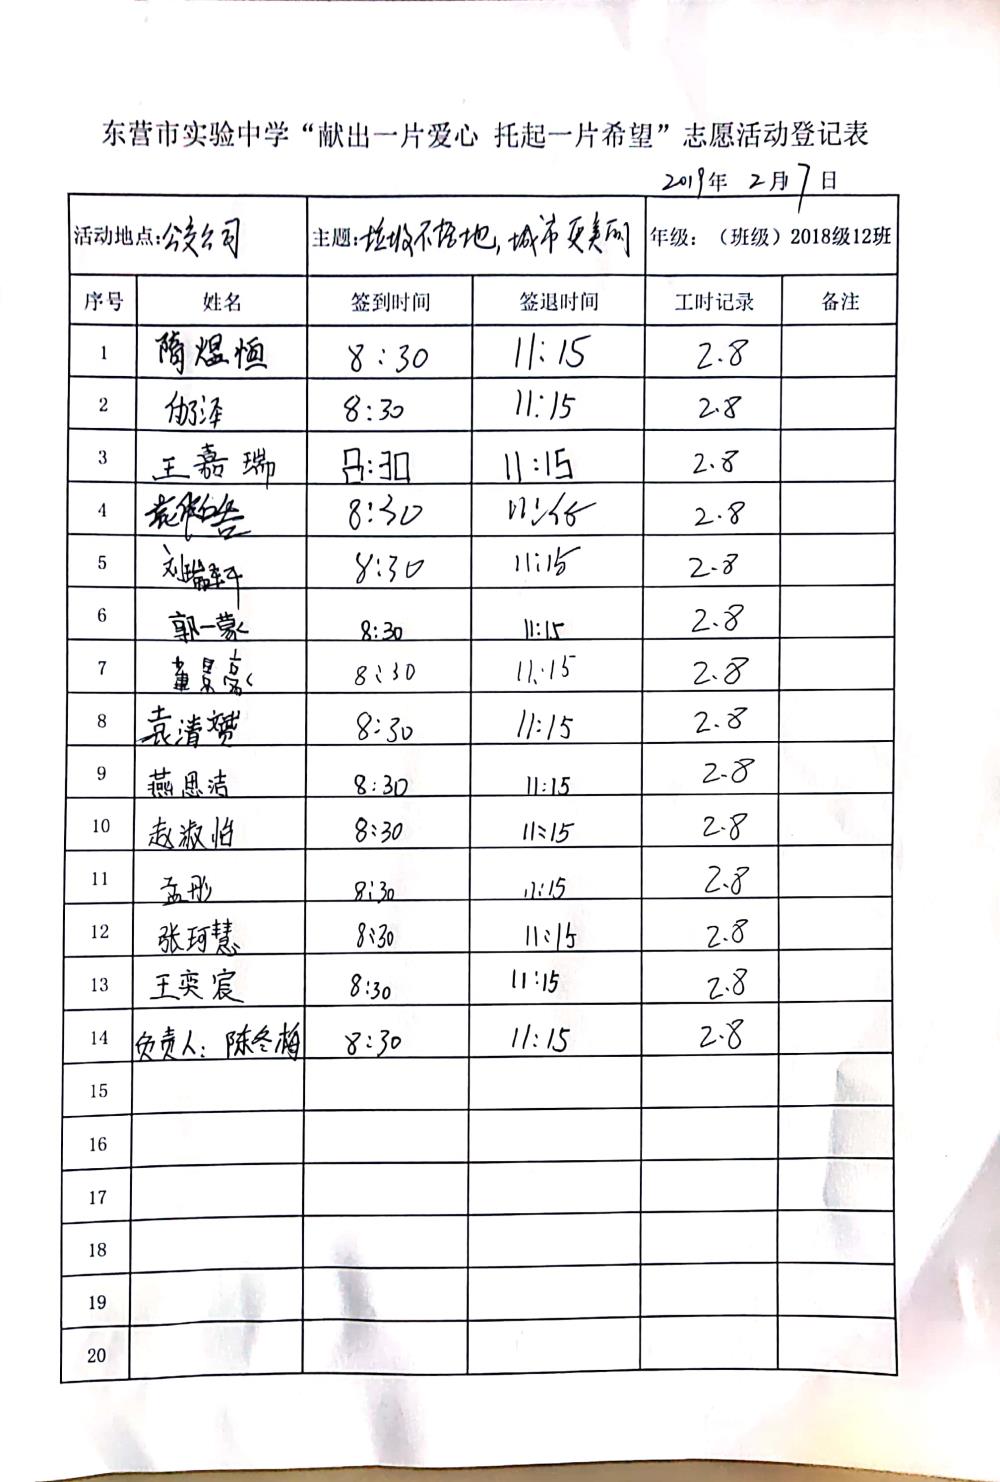 东营市实验中学“献出一片爱心 托起一片希望”志愿活动登记表
2019年 2月7日
活动地点:公交公司 主题:垃圾不落地,城市更美丽 年级：（班级）2018级12班
序号 姓名 签到时间 签退时间 工时记录 备注
1 隋煜恒 8:30 11:15 2.8
2 8:30 11:15 2.8
3 王嘉瑞 8:30 11:15 2.8
4 8:30 11:15 2.8
5 刘瑞轩 8:30 11:15 2.8
6 郭一蒙 8:30 11:15 2.8
7 董景高 8:30 11:15 2.8
8 袁清赟 8:30 11:15 2.8
9 燕思洁 8:30 11:15 2.8
10 赵淑怡 8:30 11:15 2.8
11 孟彤 8:30 11:15 2.8
12 张珂慧 8:30 11:15 2.8
13 王奕宸 8:30 11:15 2.8
14 负责人：陈冬梅 8:30 11:15 2.8
15
16
17
18
19
20